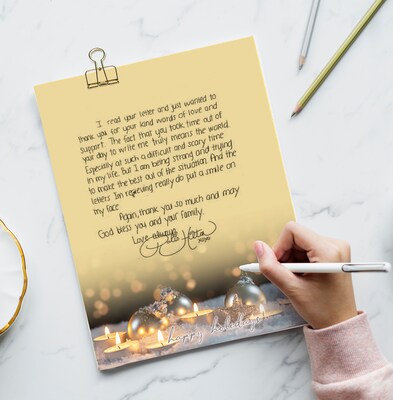 I read your letter and just wanted to
thank you for your kind words of love and
support. The fact that you took time out of
your day to write me truly means the world.
Especially at such a difficult and scary time
in my life. But I am being strong and trying
to make the best out of the situation. And the
letters I'm receiving really do put a smile on
my face.
Again, thank you so much and may
God bless you and your family.
Love always,
xoxo
happy holidays!